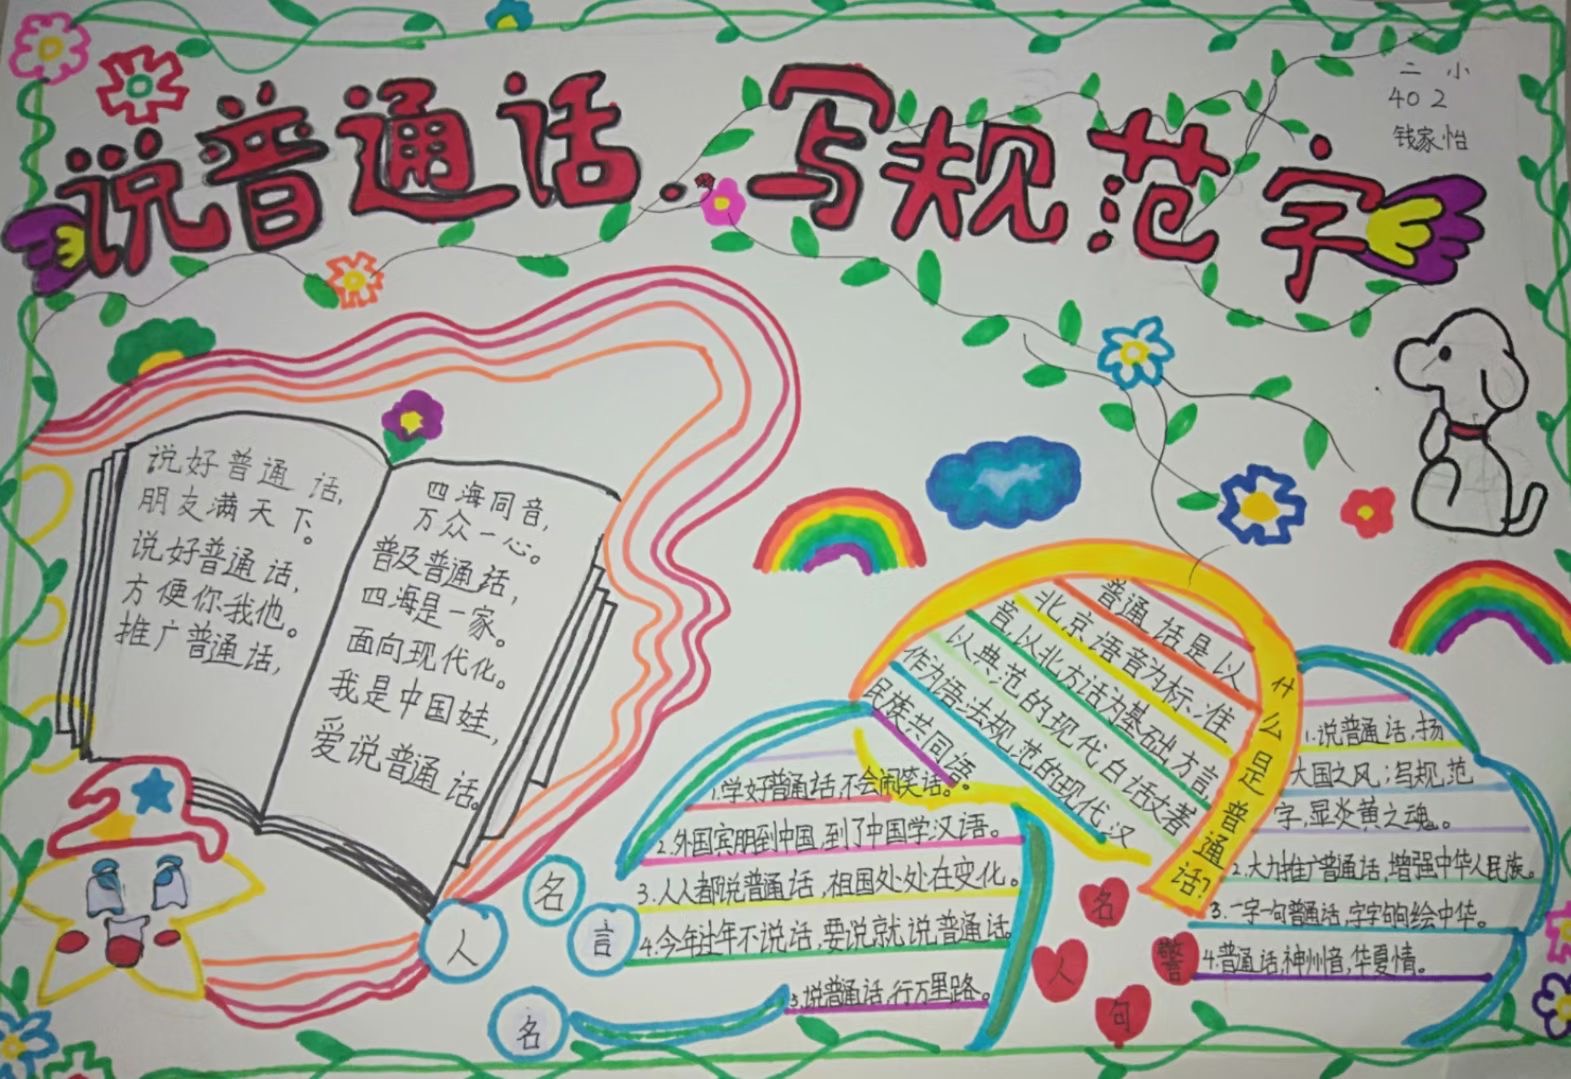 说普通话.写规范字
二小
402
钱家怡
说好普通话,
朋友满天下。
说好普通话,
方便你我他。
推广普通话,
四海同音,
万众一心。
普及普通话,
四海是一家。
面向现代化。
我是中国娃,
爱说普通话。
什么是普通话?
普通话是以
北京语音为标准
音,以北方话为基础方言
以典范的现代白话文著
作为语法规范的现代汉
民族共同语。
1.学好普通话,不会闹笑话。
2.外国宾朋到中国,到了中国学汉语。
3.人人都说普通话,祖国处处在变化。
4.今年过年不说话,要说就说普通话。
5.说普通话,行万里路。
名
人
名
言
1.说普通话,扬
大国之风;写规范
字,显炎黄之魂。
2.大力推广普通话,增强中华人民族。
3.一字一句普通话,字字句句绘中华。
4.普通话,神州音,华夏情。
名
人
警
句